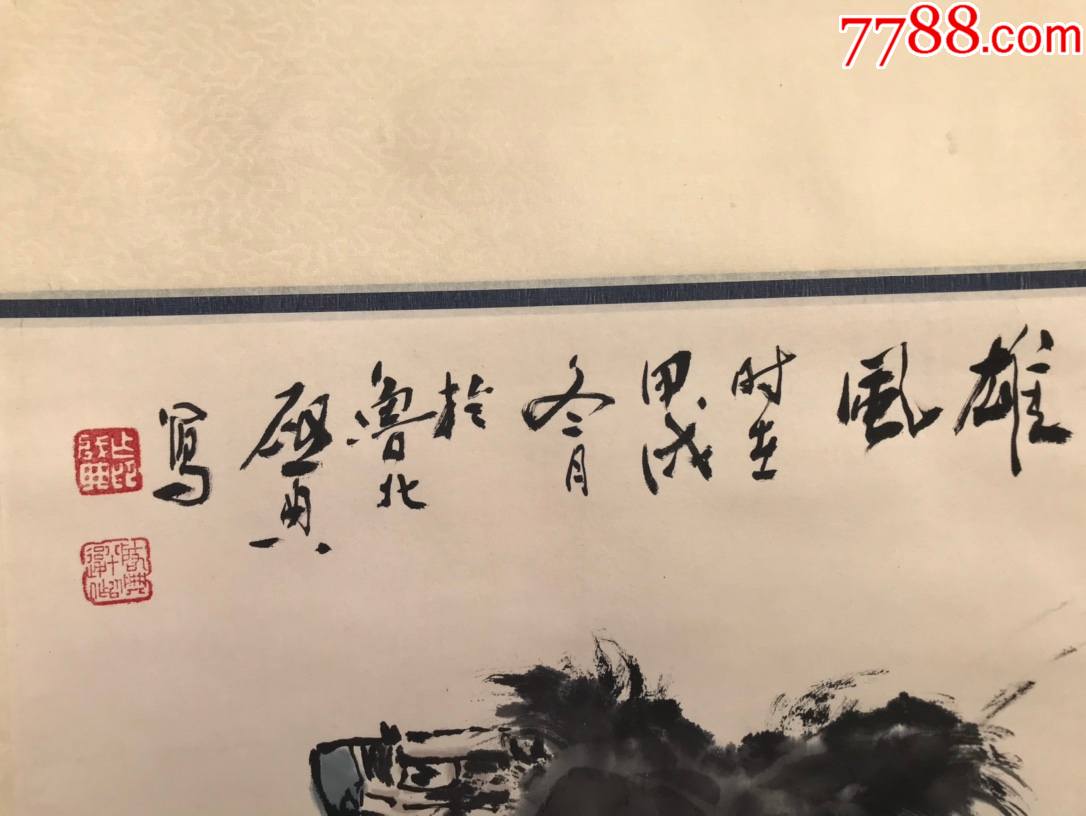 7788.com
雄
风
时在
甲戌
冬月
於
鲁北
启典
写